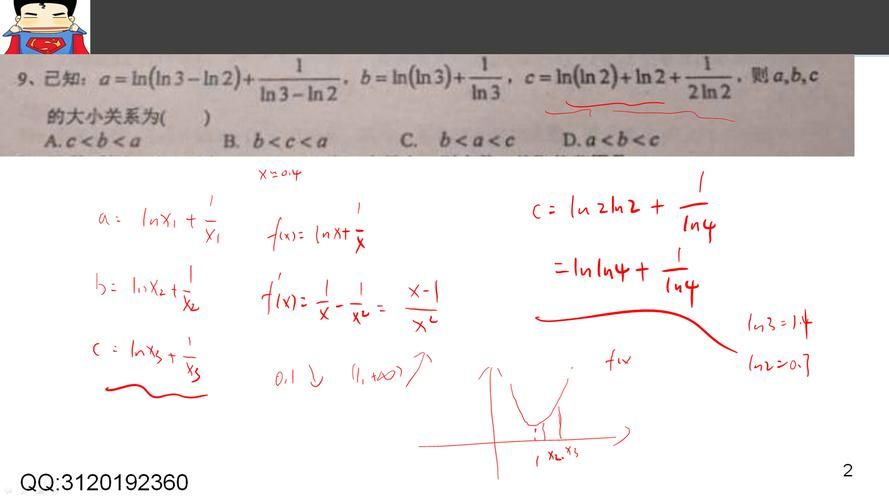 9、已知：a=ln(ln3−ln2)+1/(ln3−ln2)，b=ln(ln3)+1/ln3，c=ln(ln2)+ln2+1/(2ln2)，则a,b,c
的大小关系为(  )
A. c<b<a  B. b<c<a  C. b<a<c  D. a<b<c
x=0.4
a= lnx₁+1/x₁
f(x)=lnx+1/x
c=ln2ln2+1/ln4
b= lnx₂+1/x₂
f'(x)=1/x−1/x²=(x-1)/x²
=lnln4+1/ln4
c=lnx₃+1/x₃
0.1↓ (1,+∞)↗
ln3=1.4
ln2=0.7
f(x)
1 x₂ x₃
QQ:3120192360
2